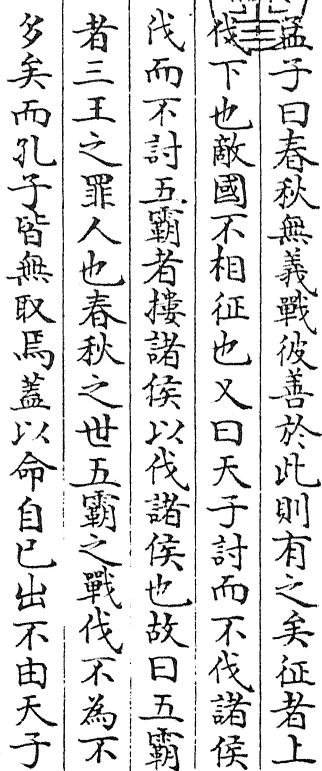 孟子曰春秋無義戰彼善於此則有之矣征者上
伐下也敵國不相征也又曰天子討而不伐諸侯
伐而不討五霸者摟諸侯以伐諸侯也故曰五霸
者三王之罪人也春秋之世五霸之戰伐不為不
多矣而孔子皆無取焉蓋以命自已出不由天子